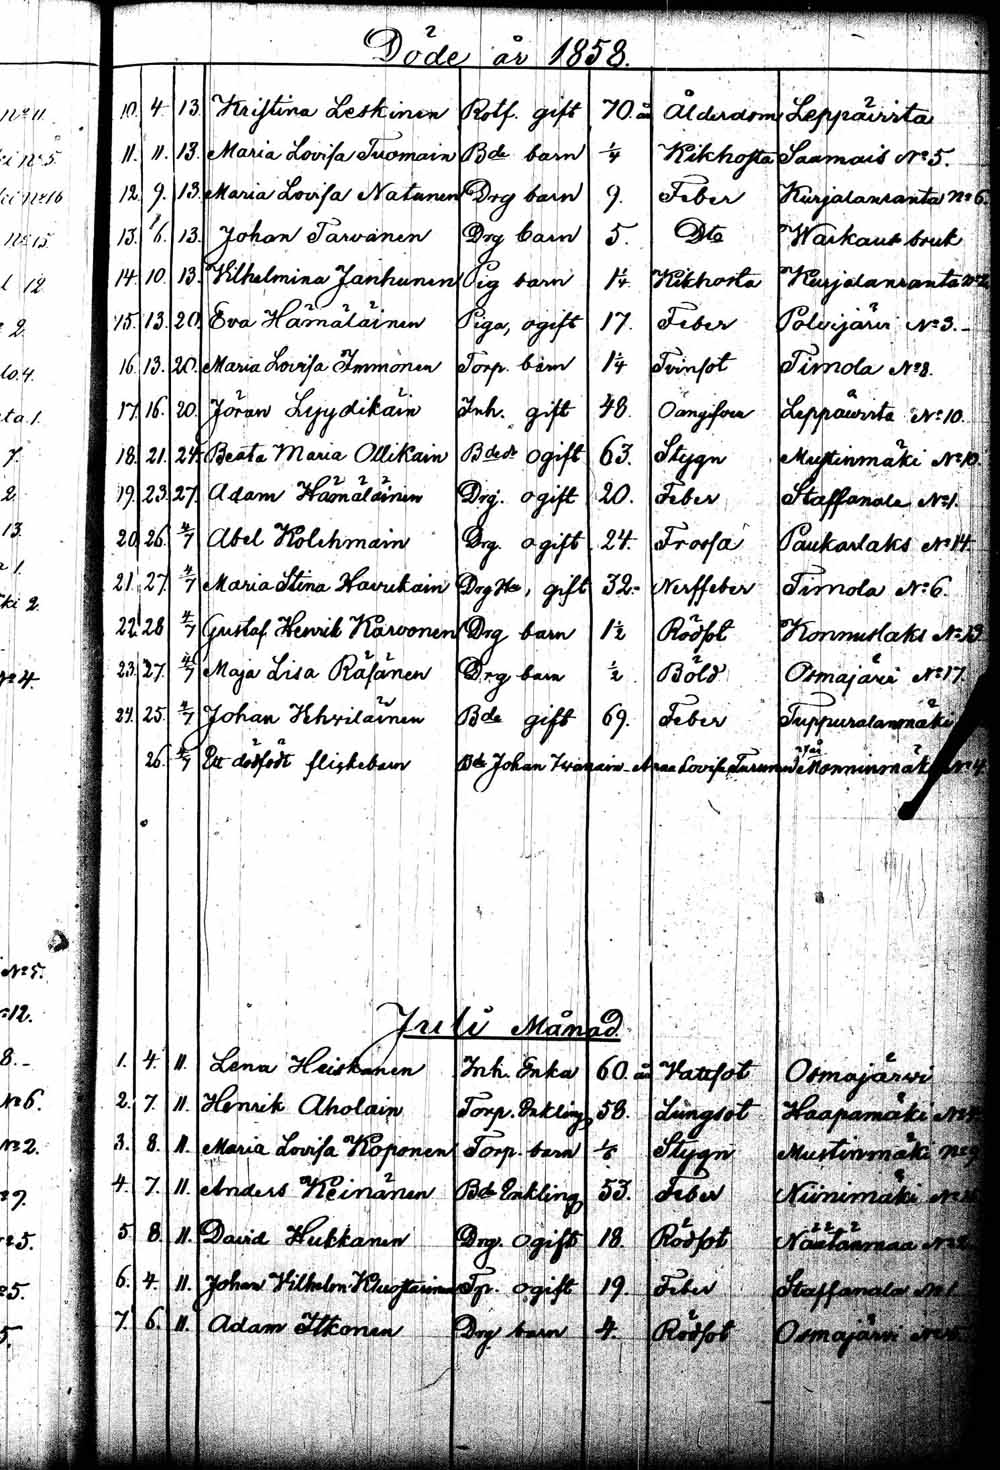 Döde år 1858.
10. 4. 13. Kristina Leskinen Rotf. gift 70. år Ålderdom Leppävirta
11. 11. 13. Maria Lovisa Tuomain Bde barn 1/4 Kikhosta Saamais No 5.
12. 9. 13. Maria Lovisa Natunen Drg barn 9. Feber Kurjalanranta No 6.
13. 6. 13. Johan Tarvanen Drg barn 5. Dto Warkaus bruk
14. 10. 13. Vilhelmina Janhunen Pig barn 1 1/4 Kikhosta Kurjalanranta No 2
15. 13. 20. Eva Hämäläinen Piga, ogift 17. Feber Polvijärvi No 3.
16. 13. 20. Maria Lovisa Immonen Torp. barn 1 1/4 Tvinsot Timola No 8.
17. 16. 20. Jöran Lyydikäin Inh. gift 48. Leppävirta No 10.
18. 21. 24. Beata Maria Ollikain ogift 63. Stygn Mustinmäki No 10.
19. 23. 27. Adam Hämäläinen Drg. ogift 20. Feber Staffanala No 1.
20. 26. 4/7 Abel Kolehmain Drg. ogift 24. Frossa Paukarlaks No 14.
21. 27. 4/7 Maria Stina Havukain Drg Hu, gift 32. Nerffeber Timola No 6.
22. 28 4/7 Gustaf Henrik Karvonen Drg barn 1 1/2 Rödsot Konnuslaks No 13
23. 27. 4/7 Maja Lisa Räsänen Drg barn 1/2 Böld Osmajärvi No 17.
24. 25. 4/7 Johan Vehviläinen Bde gift 69. Feber Tuppuralanmäki
26. 4/7 Ett dödfödt flickebarn Bde Johan Anna Lovisa Turunen Konninmäki No 4
Juli Månad.
1. 4. 11. Lena Heiskanen Inh. Enka 60. år Vattsot Osmajärvi
2. 7. 11. Henrik Aholain Torp. Enkling 58. Lungsot Haapamäki
3. 8. 11. Maria Lovisa Koponen Torp. barn Stygn Mustinmäki No 9
4. 7. 11. Anders Keinänen Bde Enkling 53. Feber Niinimäki
5. 8. 11. David Hukkanen Drg. ogift 18. Rödsot Näätänmaa
6. 4. 11. Johan Vilhelm Tp. ogift 19. Feber Staffanala No 1
7. 6. 11. Adam Itkonen Drg barn 4. Rödsot Osmajärvi